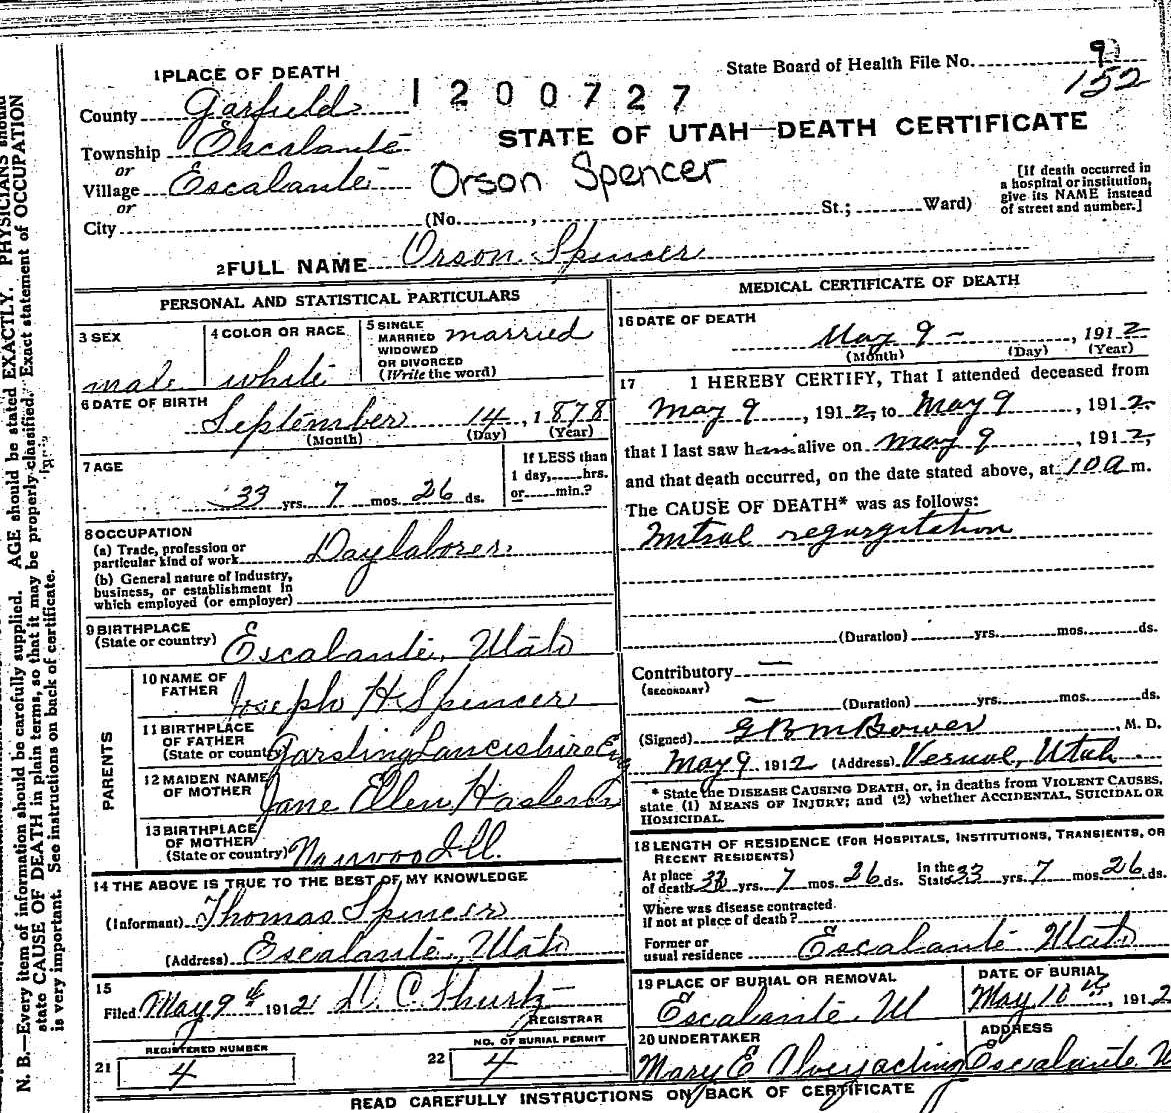 State Board of Health File No. 9
152
1 PLACE OF DEATH
1200727
County Garfield
STATE OF UTAH—DEATH CERTIFICATE
Township Escalante
or
Village Escalante
Orson Spencer
or
City (No. , St.; Ward)
[If death occurred in
a hospital or institution,
give its NAME instead
of street and number.]
2 FULL NAME Orson Spencer
PERSONAL AND STATISTICAL PARTICULARS
3 SEX
male
4 COLOR OR RACE
white
5 SINGLE
MARRIED
WIDOWED
OR DIVORCED
(Write the word)
married
6 DATE OF BIRTH
September 14, 1878
(Month) (Day) (Year)
7 AGE
33 yrs. 7 mos. 26 ds.
If LESS than
1 day, hrs.
or min.?
8 OCCUPATION
(a) Trade, profession or
particular kind of work Day laborer
(b) General nature of industry,
business, or establishment in
which employed (or employer)
9 BIRTHPLACE
(State or country) Escalante, Utah
PARENTS
10 NAME OF
FATHER Joseph H Spencer
11 BIRTHPLACE
OF FATHER
(State or country) Lancishire Eng
12 MAIDEN NAME
OF MOTHER Jane Ellen
13 BIRTHPLACE
OF MOTHER
(State or country) Ill.
14 THE ABOVE IS TRUE TO THE BEST OF MY KNOWLEDGE
(Informant) Thomas Spencer
(Address) Escalante, Utah
15
Filed May 9th 1912 D. C. Shurtz
REGISTRAR
21 REGISTERED NUMBER
4
22 NO. OF BURIAL PERMIT
4
MEDICAL CERTIFICATE OF DEATH
16 DATE OF DEATH
May 9 - , 1912
(Month) (Day) (Year)
17 I HEREBY CERTIFY, That I attended deceased from
May 9, 1912, to May 9, 1912
that I last saw him alive on May 9, 1912,
and that death occurred, on the date stated above, at 10 a m.
The CAUSE OF DEATH* was as follows:
Mitral regurgitation
(Duration) yrs. mos. ds.
Contributory —
(SECONDARY)
— (Duration) yrs. mos. ds.
(Signed) M. D.
May 9 1912 (Address) Vernal, Utah
* State the DISEASE CAUSING DEATH, or, in deaths from VIOLENT CAUSES,
state (1) MEANS OF INJURY; and (2) whether ACCIDENTAL, SUICIDAL OR
HOMICIDAL.
18 LENGTH OF RESIDENCE (FOR HOSPITALS, INSTITUTIONS, TRANSIENTS, OR
RECENT RESIDENTS)
At place
of death 33 yrs. 7 mos. 26 ds.
In the
State 33 yrs. 7 mos. 26 ds.
Where was disease contracted
if not at place of death?
Former or
usual residence Escalante Utah
19 PLACE OF BURIAL OR REMOVAL
Escalante, U
DATE OF BURIAL
May 10th, 1912
20 UNDERTAKER
Mary E acting
ADDRESS
Escalante U
READ CAREFULLY INSTRUCTIONS ON BACK OF CERTIFICATE
N. B.—Every item of information should be carefully supplied. AGE should be stated EXACTLY. PHYSICIANS should
state CAUSE OF DEATH in plain terms, so that it may be properly classified. Exact statement of OCCUPATION
is very important. See instructions on back of certificate.